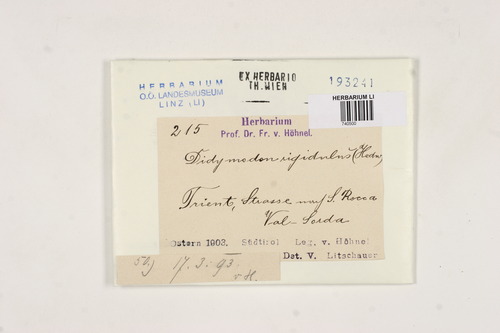 HERBARIUM
O.Ö. LANDESMUSEUM
LINZ (LI)
EX HERBARIO
TH. WIEN
193241
HERBARIUM LI
740500
Herbarium
Prof. Dr. Fr. v. Höhnel.
215
Didymodon rigidulus (Hedw)
Trient, Strasse nach S. Rocca
Val Sorda
Ostern 1903. Südtirol Leg. v. Höhnel
Det. V. Litschauer
17. 3. 93
v H.